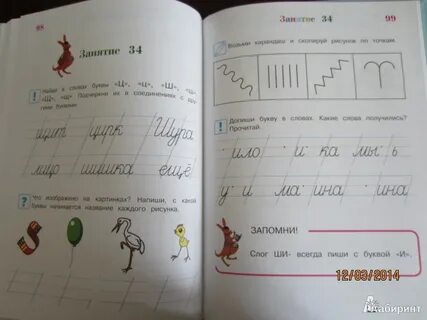 98
Занятие 34
Найди в словах буквы «Ц», «ц», «Ш», «ш»,
«Щ», «щ». Подчеркни их в соединениях с дру-
гими буквами.
щит цирк Шура
лицо шишка ещё
Что изображено на картинках? Напиши, с какой
буквы начинается название каждого рисунка.
Занятие 34 99
Возьми карандаш и скопируй рисунок по точкам.
Допиши букву в словах. Какие слова получились?
Прочитай.
·ило ·и·ка мы·ь
у·и ма·ина ·ина
ЗАПОМНИ!
Слог ШИ- всегда пиши с буквой «И».
12/03/2014
Лабиринт